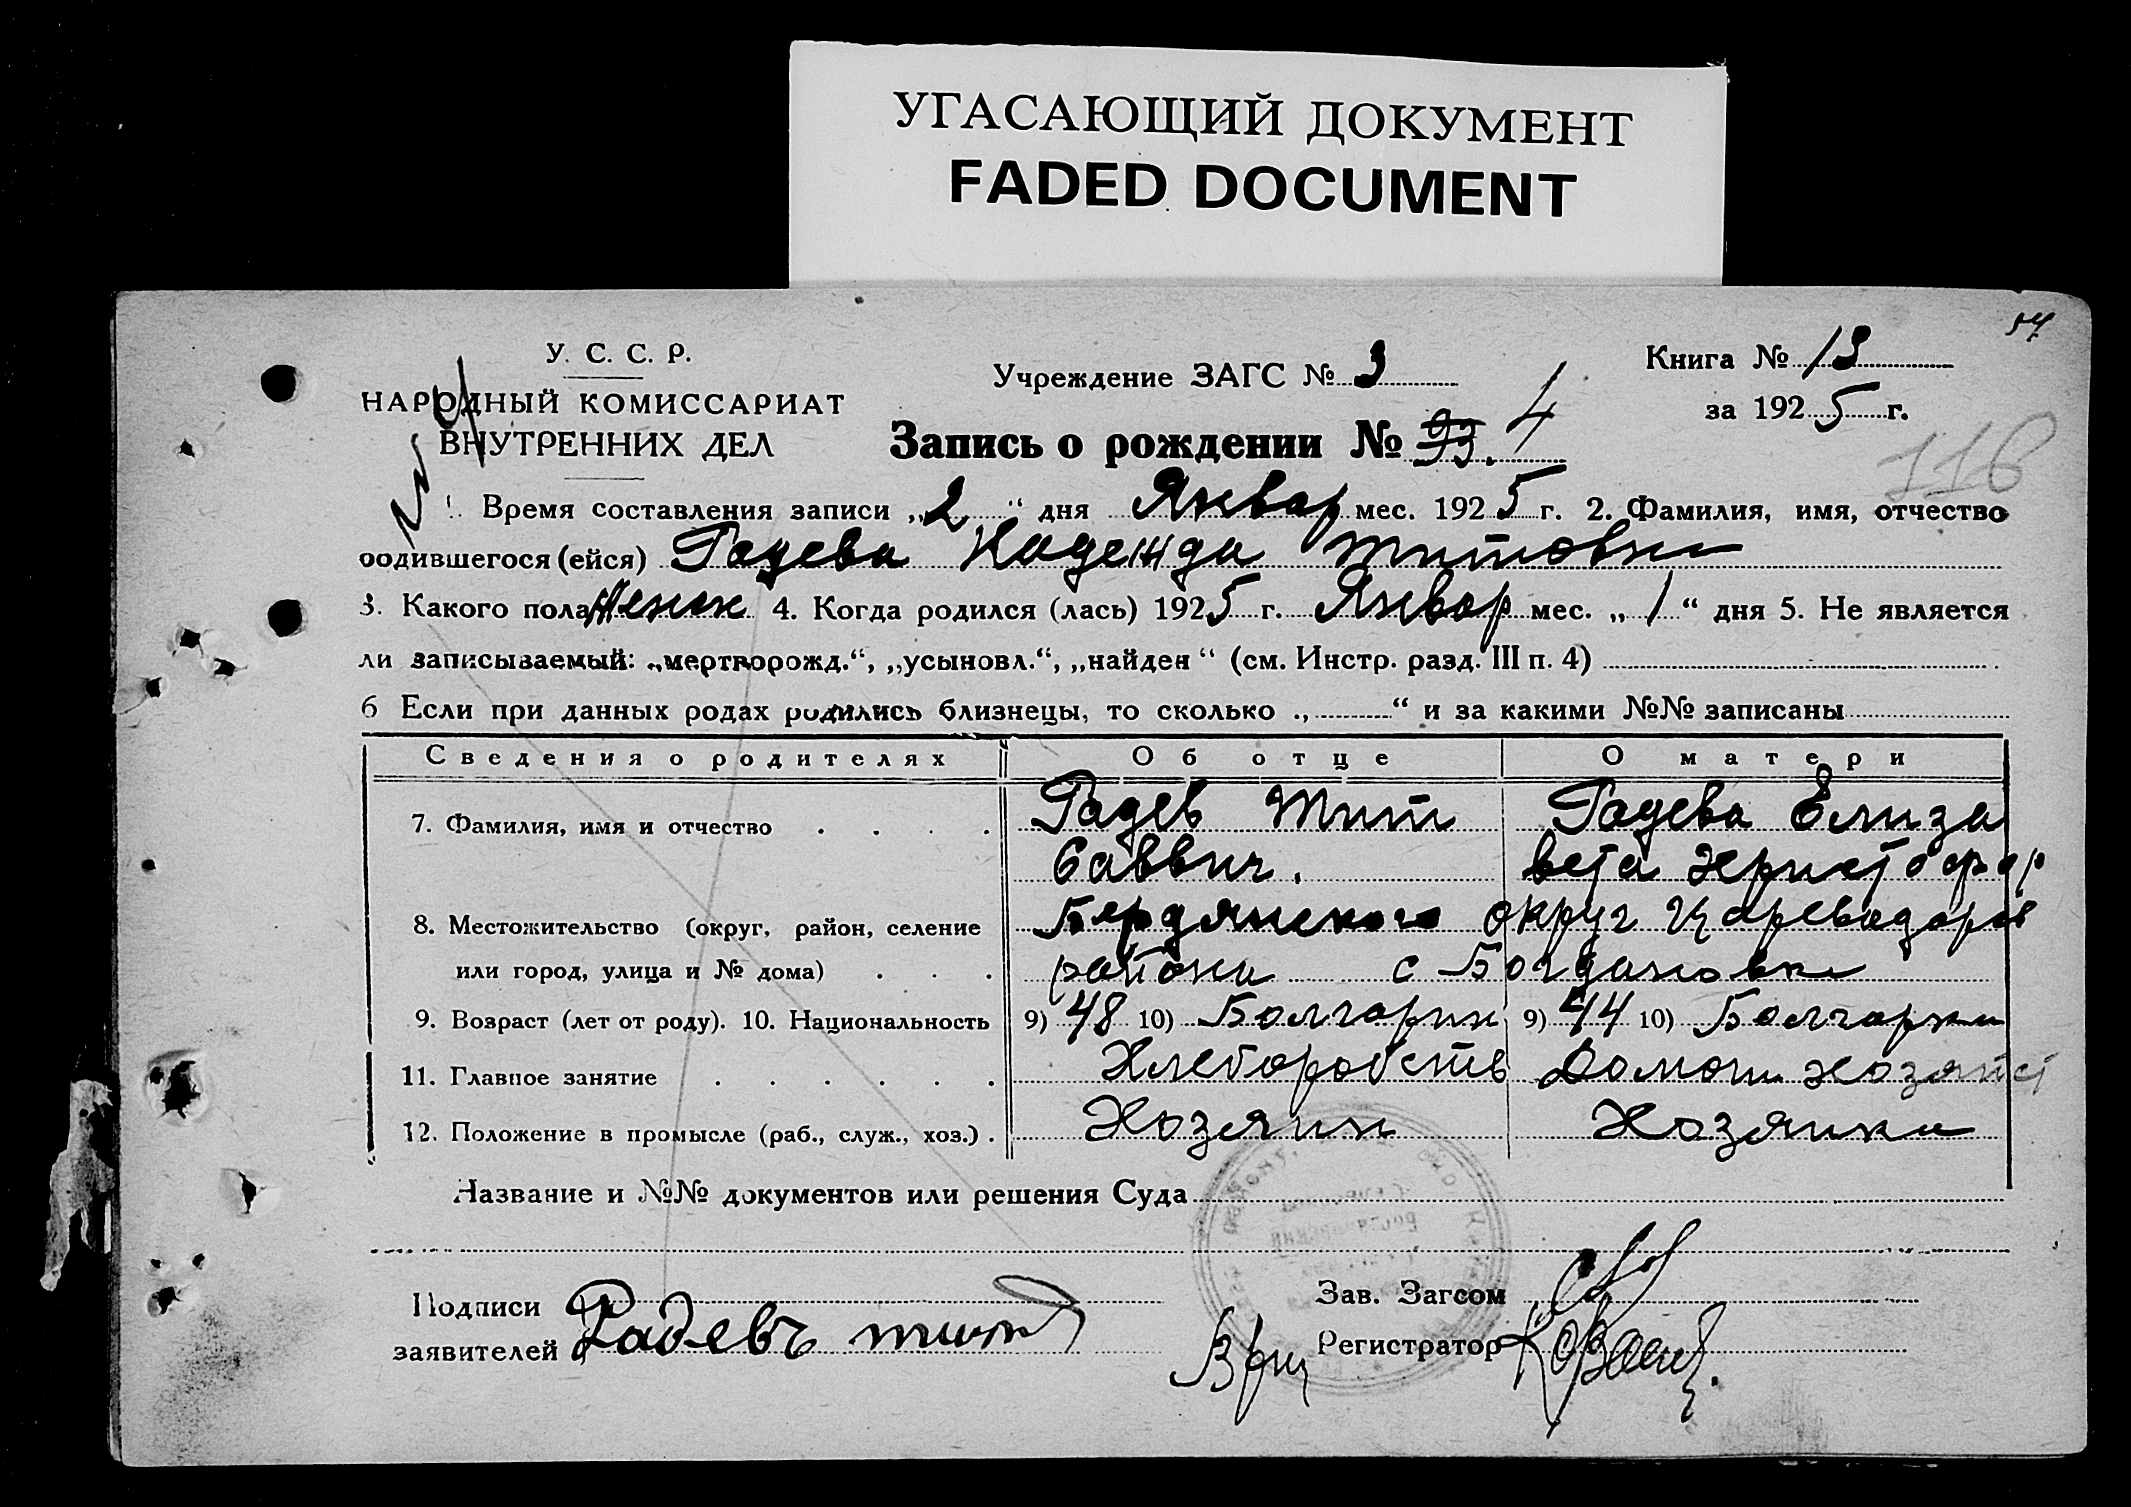 УГАСАЮЩИЙ ДОКУМЕНТ
FADED DOCUMENT
54
У. С. С. Р.
НАРОДНЫЙ КОМИССАРИАТ
ВНУТРЕННИХ ДЕЛ
Учреждение ЗАГС № 3
Книга № 13
за 1925 г.
Запись о рождении № 93. 4
116
1. Время составления записи „2“ дня Январ мес. 1925 г. 2. Фамилия, имя, отчество
родившегося (ейся) Радева Надежда Титовна
3. Какого пола Женск 4. Когда родился (лась) 1925 г. Январ мес. „1“ дня 5. Не является
ли записываемый: „мертворожд.“, „усыновл.“, „найден“ (см. Инстр. разд. III п. 4)
6 Если при данных родах родились близнецы, то сколько „ “ и за какими №№ записаны
Сведения о родителях Об отце О матери
7. Фамилия, имя и отчество Радев Тит Радева Елиза
Саввич. вета Христофор
8. Местожительство (округ, район, селение Бердянского округ Цареводаров
или город, улица и № дома) района с Богдановка
9. Возраст (лет от роду). 10. Национальность 9) 48 10) Болгарин 9) 44 10) Болгарка
11. Главное занятие Хлеборобств Домашн хозяйст
12. Положение в промысле (раб., служ., хоз.) Хозяин Хозяика
Название и №№ документов или решения Суда
Подписи
заявителей Радевъ тит
Зав. Загсом
Врид Регистратор